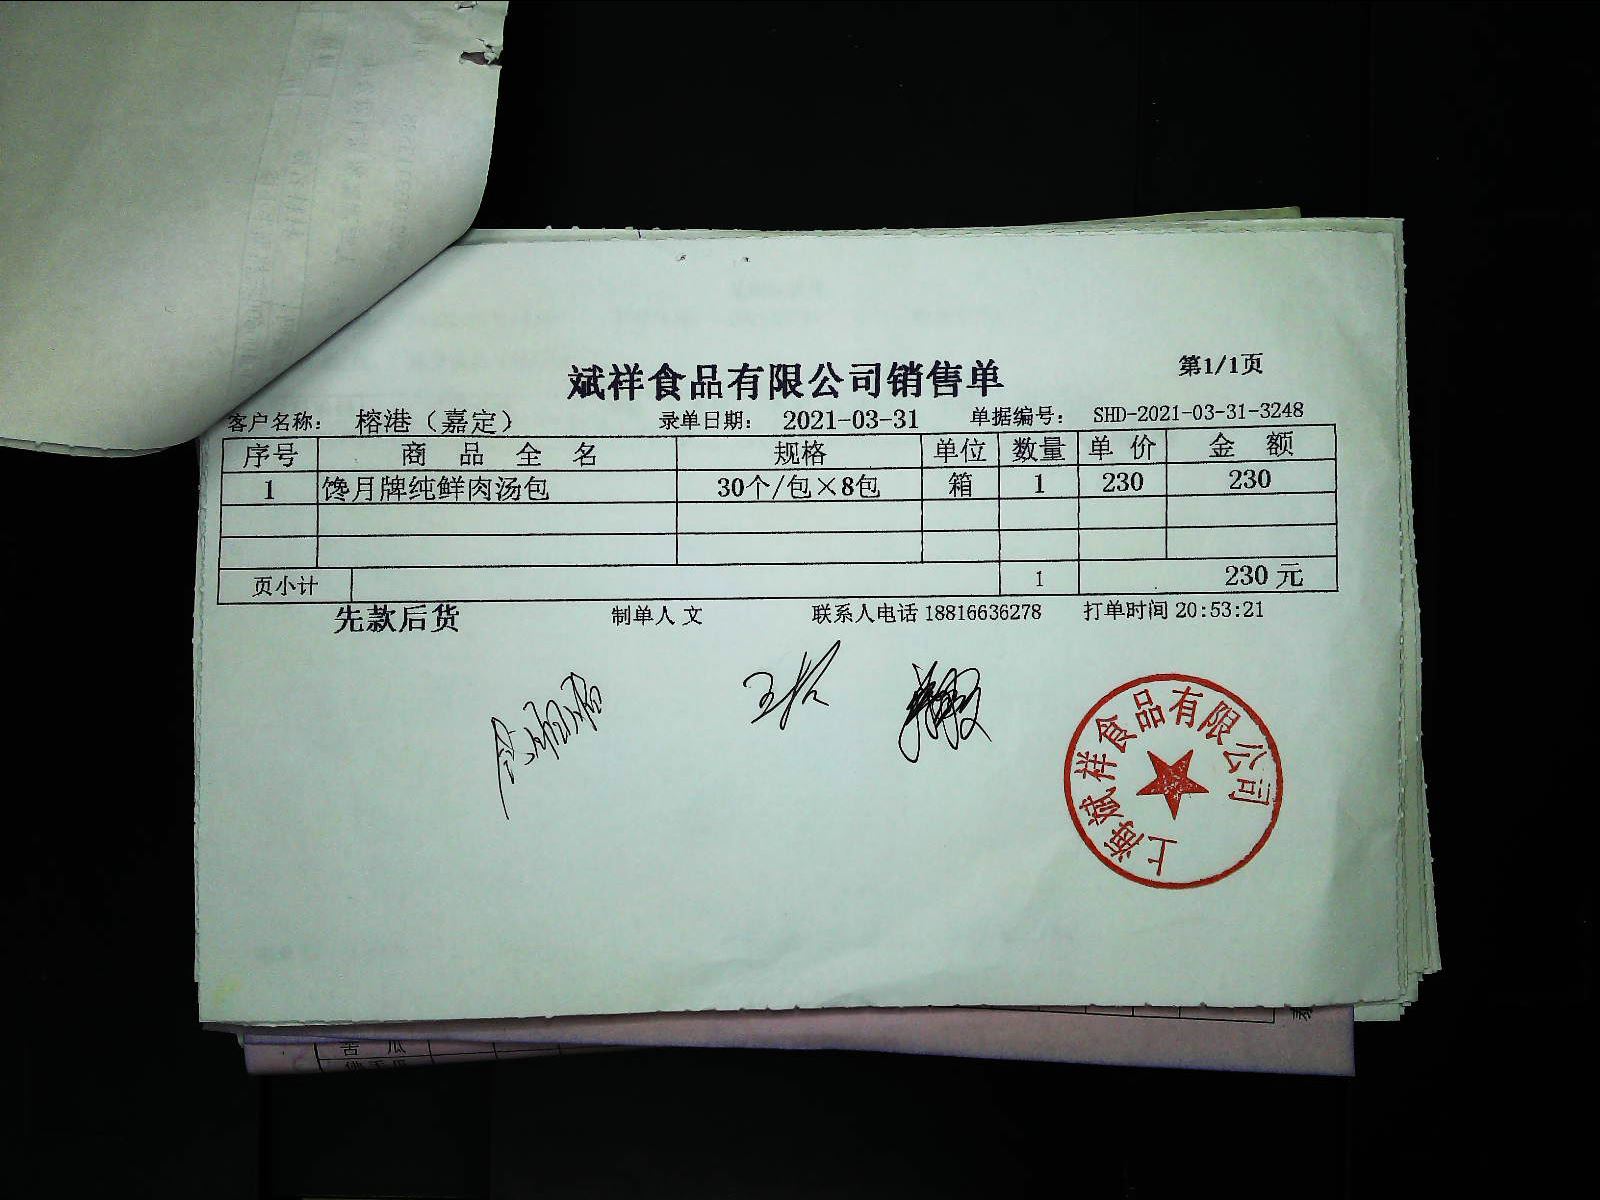 斌祥食品有限公司销售单
第1/1页
客户名称： 榕港（嘉定） 录单日期： 2021-03-31 单据编号： SHD-2021-03-31-3248
序号 商品全名 规格 单位 数量 单价 金额
1 馋月牌纯鲜肉汤包 30个/包×8包 箱 1 230 230
页小计 1 230元
先款后货 制单人 文 联系人电话 18816636278 打单时间 20:53:21
上海斌祥食品有限公司
苦 瓜